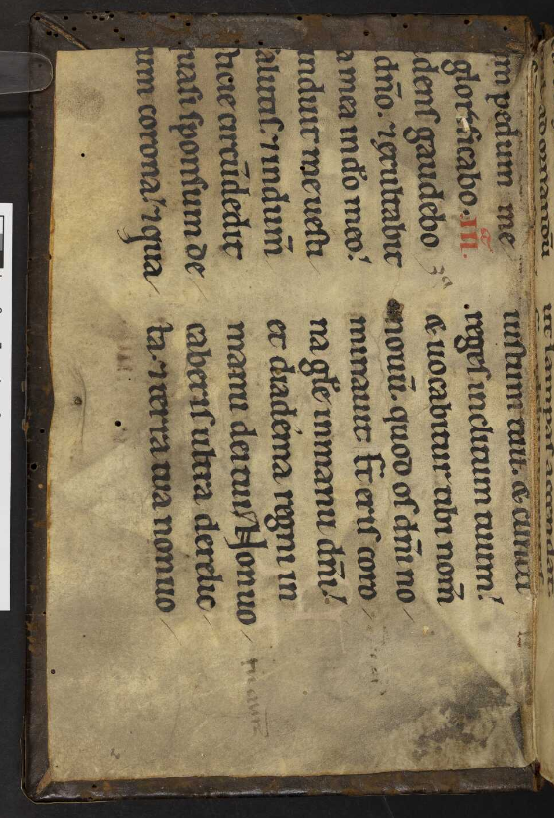 m pedum me
glorificabo. in.
dens gaudebo
dn̄o. ⁊ exultabit
a mea in dō meo.
nduit me uesti
alutaris. ⁊ indum̄
ticie circūdedit
uasi sponsum de
um corona. ⁊ qua
iustum tuū. & cuncti
reges inclitum tuum.
& uocabitur tibi nom̄
nouū. quod os dn̄i no
minauit. Et eris coro
na glē in manu dn̄i.
et diadema regni in
manu dei tui. Non uo
caberis ultra derelic
ta. ⁊ terra tua non uo